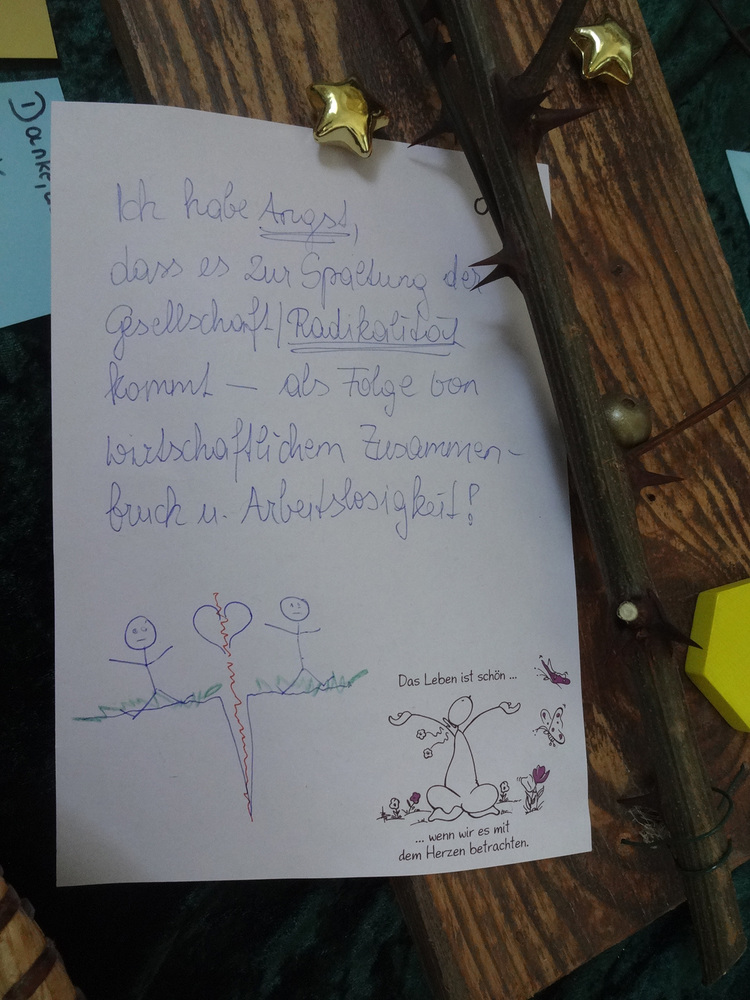 Danke,
Ich habe Angst,
dass es zur Spaltung der
Gesellschaft/Radikalität
kommt – als Folge von
wirtschaftlichem Zusammen-
bruch u. Arbeitslosigkeit!
Das Leben ist schön ...
... wenn wir es mit
dem Herzen betrachten.